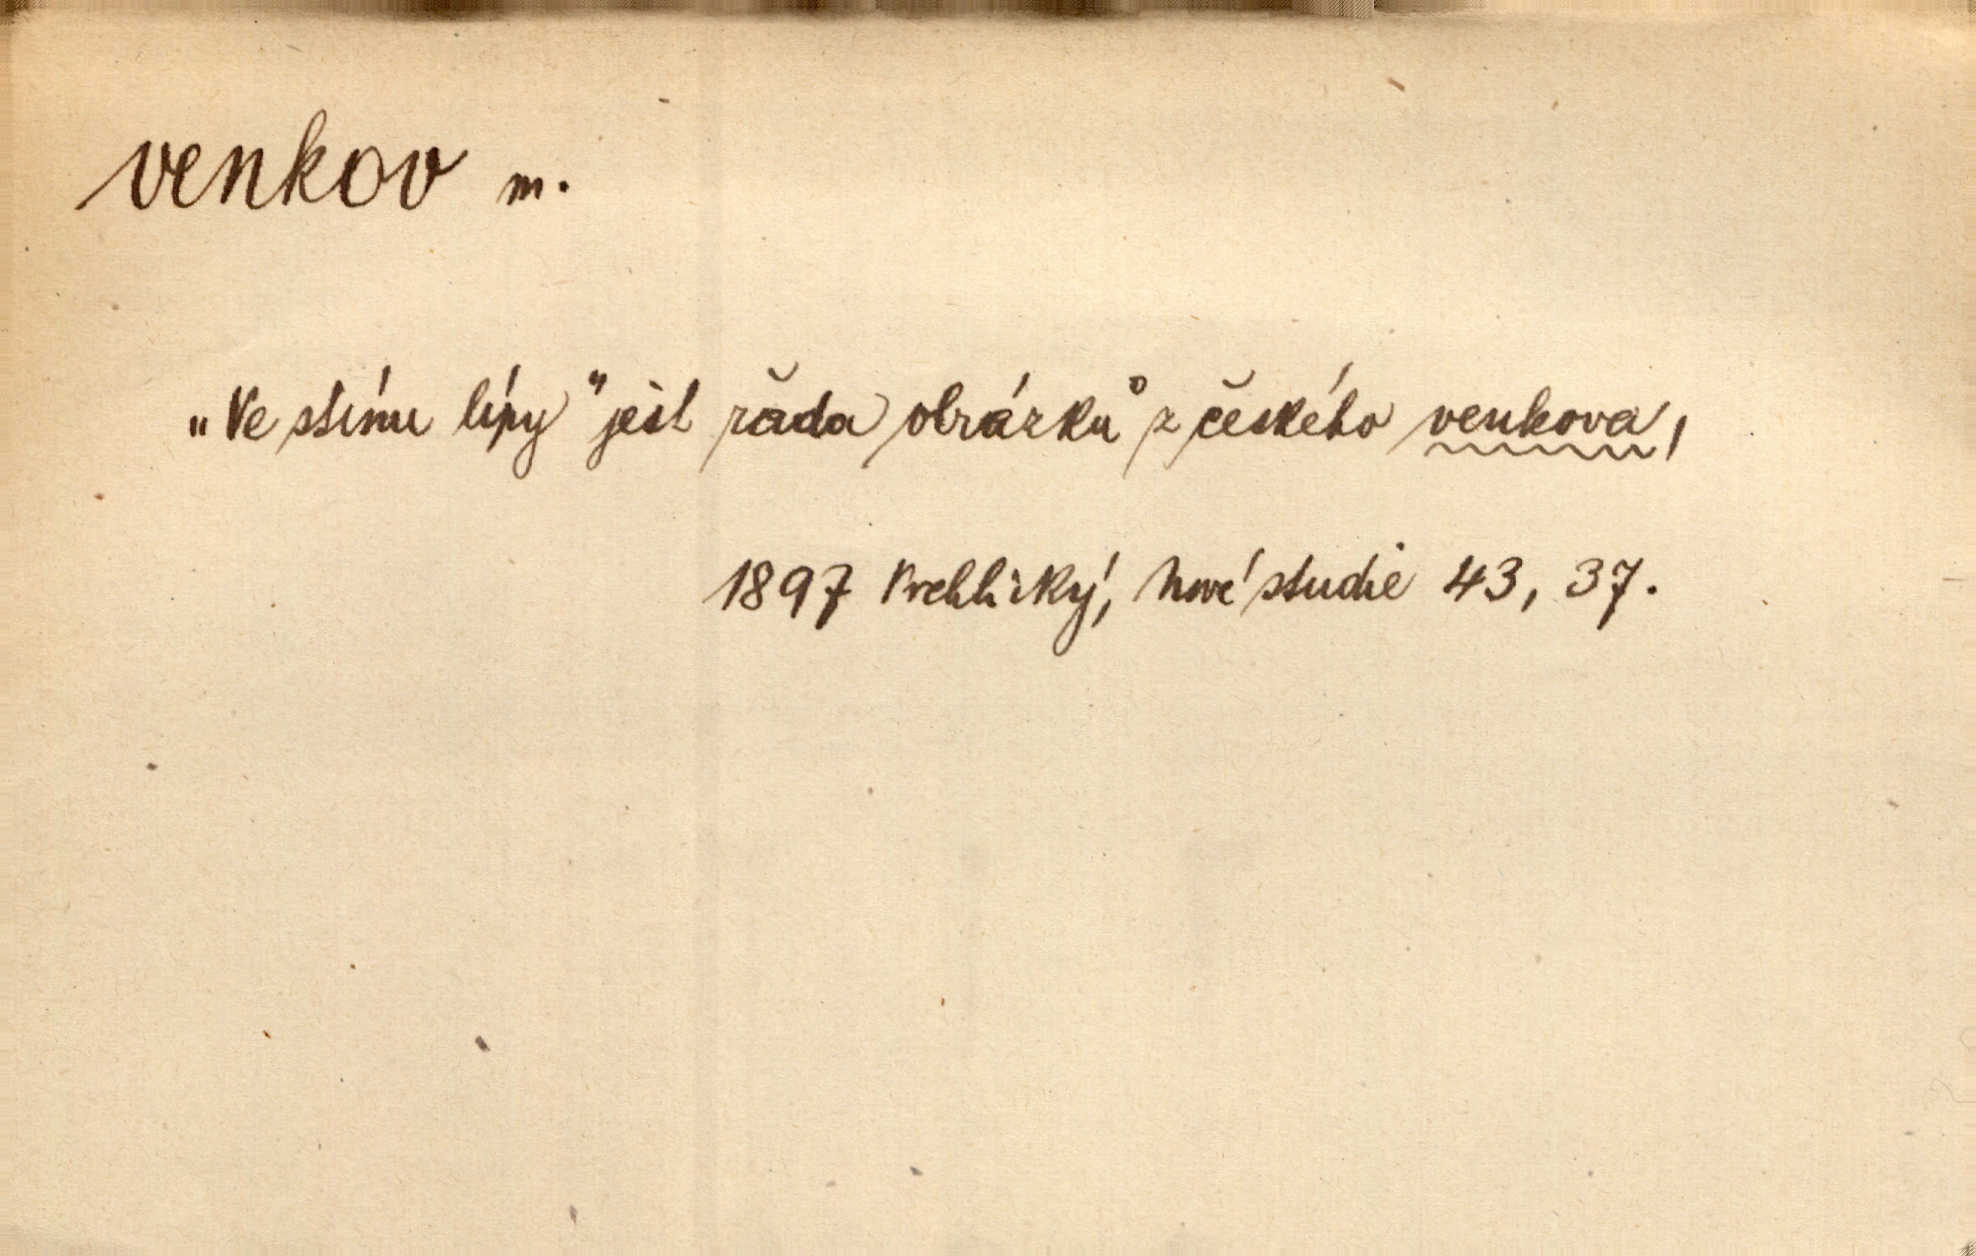 venkov m.
„Ve stínu lípy" jest řada obrázků z českého venkova,
1897 Vrchlický, Nové studie 43, 37.